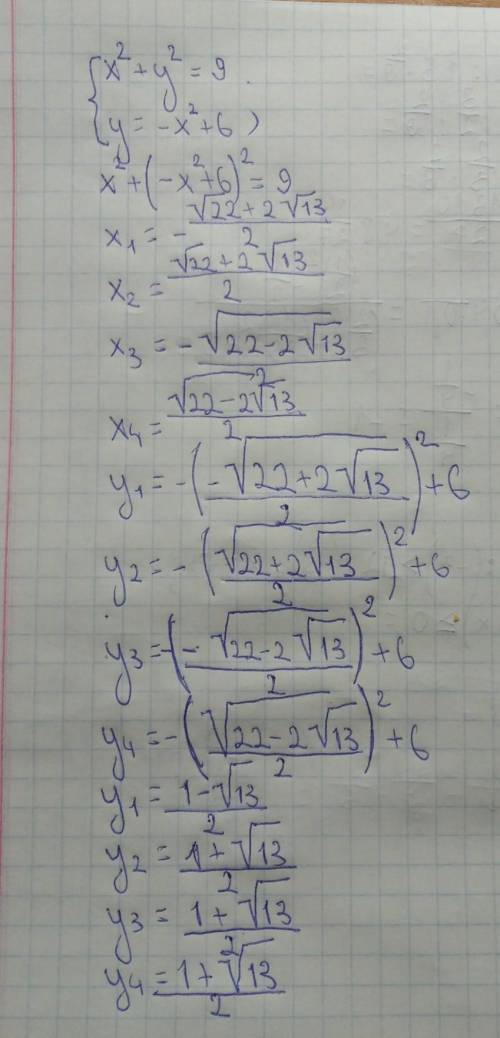 {x² + y² = 9
{y = -x² + 6
x² + (-x² + 6)² = 9
x₁ = -√(22 + 2√13)/2
x₂ = √(22 + 2√13)/2
x₃ = -√(22 - 2√13)/2
x₄ = √(22 - 2√13)/2
y₁ = -(-√(22 + 2√13)/2)² + 6
y₂ = -(√(22 + 2√13)/2)² + 6
y₃ = -(-√(22 - 2√13)/2)² + 6
y₄ = -(√(22 - 2√13)/2)² + 6
y₁ = (1 - √13)/2
y₂ = (1 + √13)/2
y₃ = (1 + √13)/2
y₄ = (1 + √13)/2